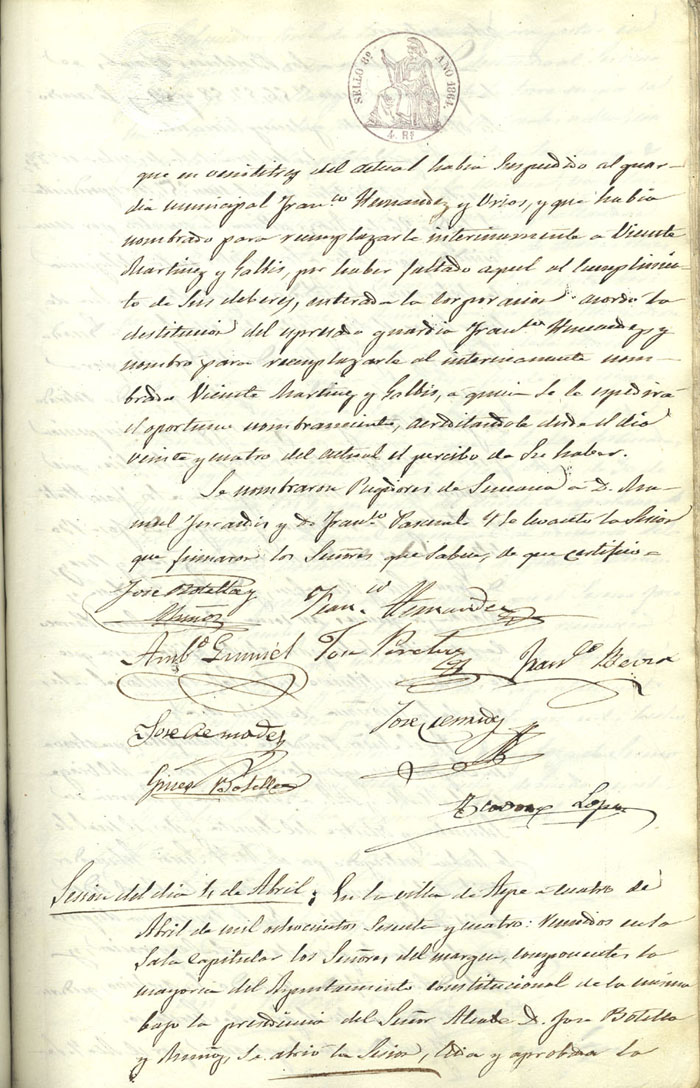 SELLO 8º AÑO 1864.
4. Rs
que en veintitres del actual habia suspendido al guar-
dia municipal Franco Hernandez y Urios, y que habia
nombrado para reemplazarle interinamente a Vicente
Martinez y Galbis, por haber faltado aquel al cumplimien-
to de sus deberes, enterada la corporacion acordó la
destitucion del espresado guardia Franco Hernandez, y
nombró para reemplazarle al interinamente nom-
brado Vicente Martinez y Galbis, a quien se le espedirá
el oportuno nombramiento, acreditandole desde el dia
veinte y cuatro del actual el percibo de su haber.
Se nombraron Regidores de Semana a D. Ma-
nuel y Dn Franco Pascual. Y se levantó la Sesion
que firmaron los Señores que saben, de que certifico=
Jose Botella y
Muñoz Franco Hernandez
Ambº Jose Franco
Jose Cremades Jose Cremades
Gines Botella
Lopez
Sesion del dia 4 de Abril; En la villa de Aspe a cuatro de
Abril de mil ochocientos sesenta y cuatro: reunidos en la
Sala Capitular los Señores del margen, componentes la
mayoria del Ayuntamiento constitucional de la misma
bajo la presidencia del Señor Alcalde D. Jose Botella
y Muñoz, se abrió la Sesion, leida y aprobada la